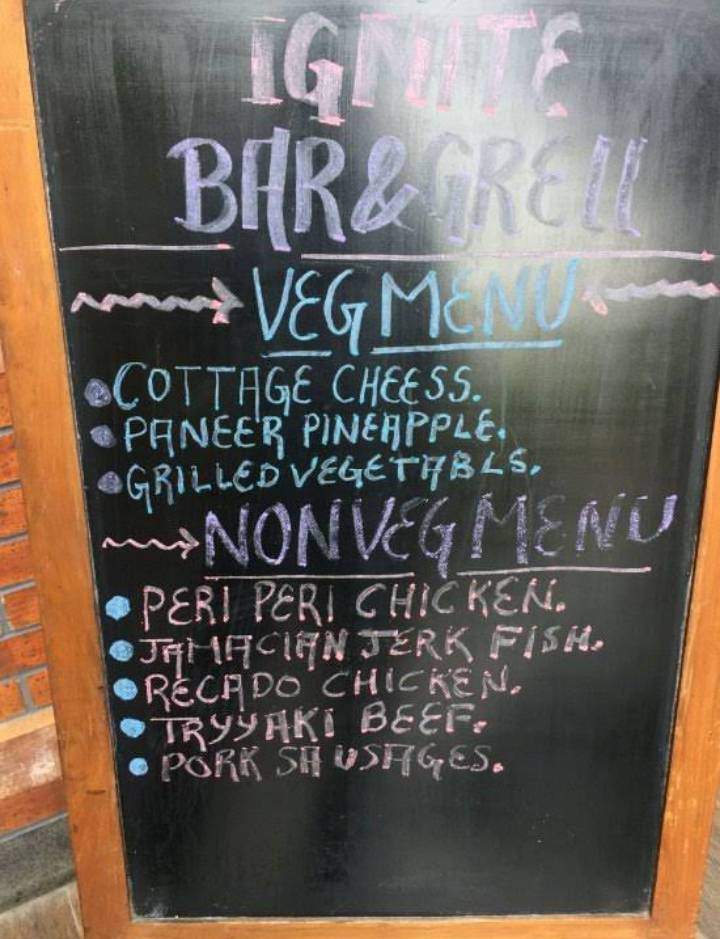 IGNITE
BAR&GRELL
VEG MENU
COTTAGE CHEESS.
PANEER PINEAPPLE.
GRILLED VEGETABLS.
NONVEG MENU
PERI PERI CHICKEN.
JAMACIAN JERK FISH.
RECADO CHICKEN.
TRYYAKI BEEF.
PORK SAUSAGES.